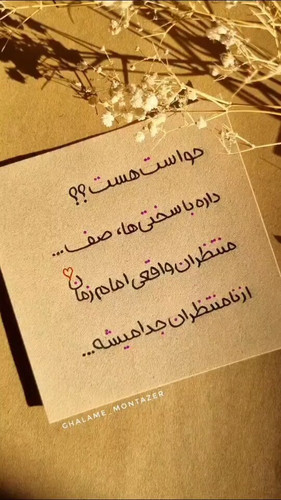 حواست هست؟؟
داره با سختی‌ها، صف...
منتظران واقعی امام زمان
از نامنتظران جدا میشه...
GHALAME_MONTAZER